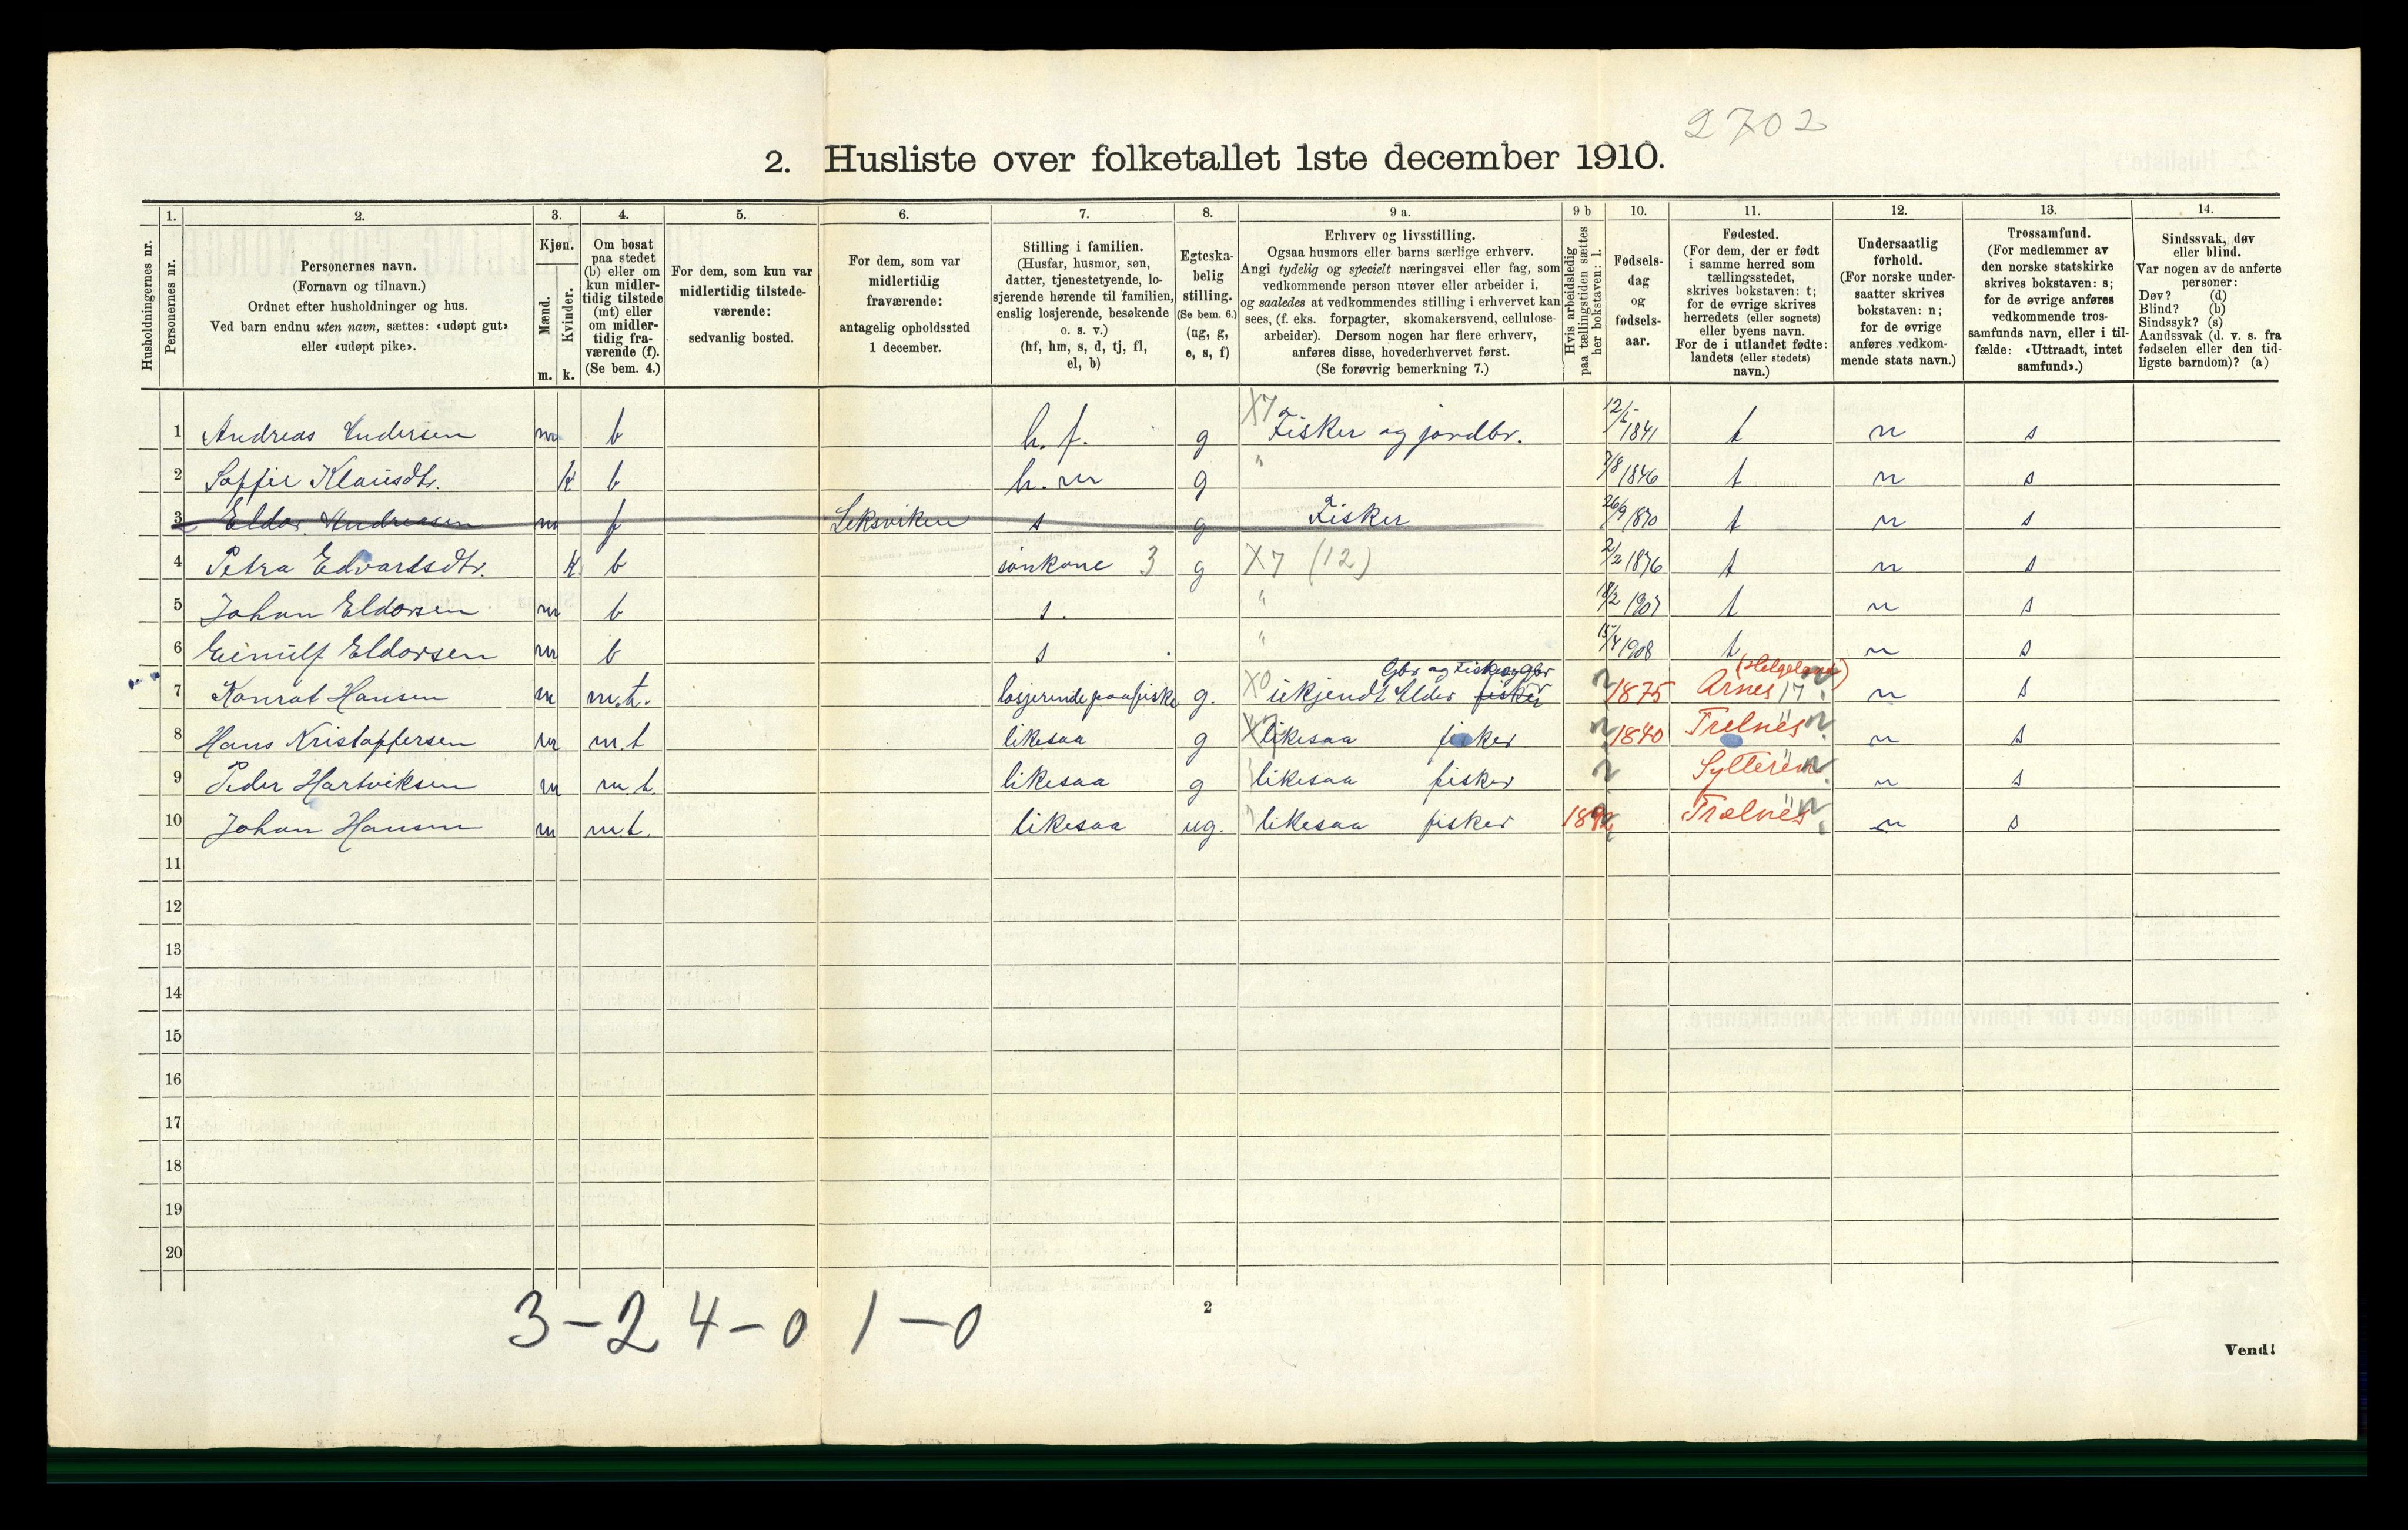 2702
2. Husliste over folketallet 1ste december 1910.
Husholdningernes nr.
1.
Personernes nr.
2.
Personernes navn.
(Fornavn og tilnavn.)
Ordnet efter husholdninger og hus.
Ved barn endnu uten navn, sættes: «udøpt gut»
eller «udøpt pike».
3.
Kjøn.
Mænd.
Kvinder.
m. k.
4.
Om bosat
paa stedet
(b) eller om
kun midler-
tidig tilstede
(mt) eller
om midler-
tidig fra-
værende (f).
(Se bem. 4.)
5.
For dem, som kun var
midlertidig tilstede-
værende:
sedvanlig bosted.
6.
For dem, som var
midlertidig
fraværende:
antagelig opholdssted
1 december.
7.
Stilling i familien.
(Husfar, husmor, søn,
datter, tjenestetyende, lo-
sjerende hørende til familien,
enslig losjerende, besøkende
o. s. v.)
(hf, hm, s, d, tj, fl,
el, b)
8.
Egteska-
belig
stilling.
(Se bem. 6.)
(ug, g,
e, s, f)
9 a.
Erhverv og livsstilling.
Ogsaa husmors eller barns særlige erhverv.
Angi tydelig og specielt næringsvei eller fag, som
vedkommende person utøver eller arbeider i,
og saaledes at vedkommendes stilling i erhvervet kan
sees, (f. eks. forpagter, skomakersvend, cellulose-
arbeider). Dersom nogen har flere erhverv,
anføres disse, hovederhvervet først.
(Se forøvrig bemerkning 7.)
9 b
Hvis arbeidsledig
paa tællingstiden sættes
her bokstaven: l.
10.
Fødsels-
dag
og
fødsels-
aar.
11.
Fødested.
(For dem, der er født
i samme herred som
tællingsstedet,
skrives bokstaven: t;
for de øvrige skrives
herredets (eller sognets)
eller byens navn.
For de i utlandet fødte:
landets (eller stedets)
navn.)
12.
Undersaatlig
forhold.
(For norske under-
saatter skrives
bokstaven: n;
for de øvrige
anføres vedkom-
mende stats navn.)
13.
Trossamfund.
(For medlemmer av
den norske statskirke
skrives bokstaven: s;
for de øvrige anføres
vedkommende tros-
samfunds navn, eller i til-
fælde: «Uttraadt, intet
samfund».)
14.
Sindssvak, døv
eller blind.
Var nogen av de anførte
personer:
Døv? (d)
Blind? (b)
Sindssyk? (s)
Aandssvak (d. v. s. fra
fødselen eller den tid-
ligste barndom)? (a)
1 Andreas Andersen m b h. f. g X7 Fisker og jordbr. 12/1 1841 t n s
2 Soffie Klausdtr. k b h. m g " 7/8 1846 t n s
3 Eldor Andreasen m f Leksviken s g Fisker 26/9 1870 t n s
4 Petra Edvardsdtr. k b sønkone 3 g X7 (12) 2/2 1876 t n s
5 Johan Eldorsen m b s. " 18/2 1907 t n s
6 Einulf Eldorsen m b s " 15/4 1908 t n s
7 Konrat Hansen m m.t. losjerende paa fiske g. X0 ukjendt Elder fisker 1875 Arnes (Helgeland) n s
8 Hans Kristoffersen m m.t likesaa g likesaa fisker 1840 Trelnes n s
9 Peder Hartviksen m m.t likesaa g likesaa fisker n s
10 Johan Hansen m m.t. likesaa ug. likesaa fisker 1892 Trælnes n s
11
12
13
14
15
16
17
18
19
20
3 - 2 4 - 0 1 - 0
2
Vend!